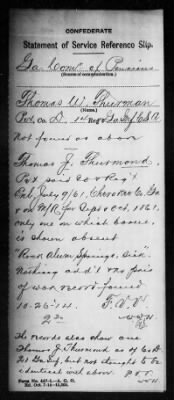 CONFEDERATE
Statement of Service Reference Slip.
Ga. Com'r of Pensions
(Source of communication.)
Thomas W. Thurman
Pvt. Co. D. 1st Reg't Ga. Inf. C.S.A.
Not found as above
Thomas J. Thurmond,
Pvt said Co & Reg't
Enl. July 9/61, Cherokee Co. Ga
on M/R for Sept & Oct. 1861,
only one on which borne,
is shown absent
"Near Alum Springs, Sick".
Nothing add'l & no pris
of war record found
10-26-14.
The records also show one
Thomas J. Thurmond as of Co.
Ga. Inf., but not thought to be
identical with above.
Form No. 447—A. G. O.
Ed. Oct. 7-14—15,000.